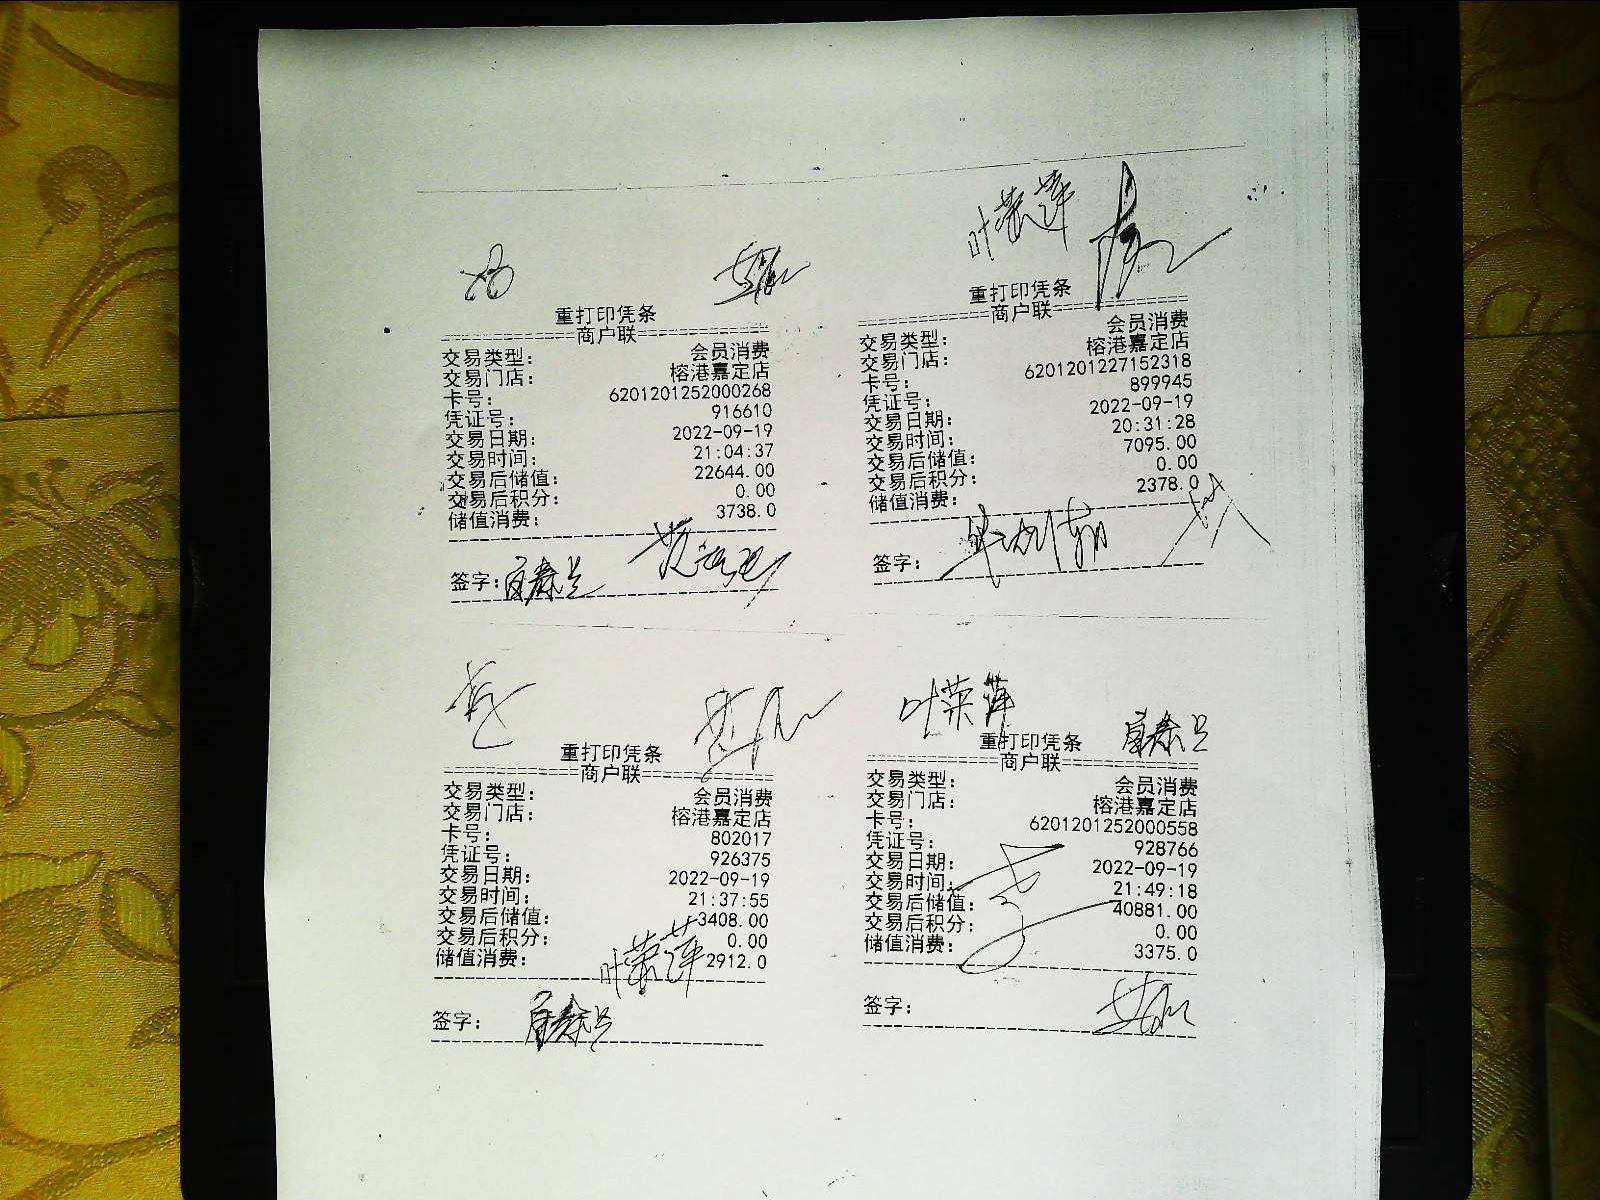 重打印凭条
商户联
交易类型: 会员消费
交易门店: 榕港嘉定店
卡号: 6201201252000268
凭证号: 916610
交易日期: 2022-09-19
交易时间: 21:04:37
交易后储值: 22644.00
交易后积分: 0.00
储值消费: 3738.0
签字:
叶荣萍
重打印凭条
商户联
交易类型: 会员消费
交易门店: 榕港嘉定店
卡号: 6201201227152318
凭证号: 899945
交易日期: 2022-09-19
交易时间: 20:31:28
交易后储值: 7095.00
交易后积分: 0.00
储值消费: 2378.0
签字:
重打印凭条
商户联
交易类型: 会员消费
交易门店: 榕港嘉定店
卡号: 802017
凭证号: 926375
交易日期: 2022-09-19
交易时间: 21:37:55
交易后储值: 3408.00
交易后积分: 0.00
储值消费: 2912.0
叶荣萍
签字:
叶荣萍
重打印凭条
商户联
交易类型: 会员消费
交易门店: 榕港嘉定店
卡号: 6201201252000558
凭证号: 928766
交易日期: 2022-09-19
交易时间: 21:49:18
交易后储值: 40881.00
交易后积分: 0.00
储值消费: 3375.0
签字: